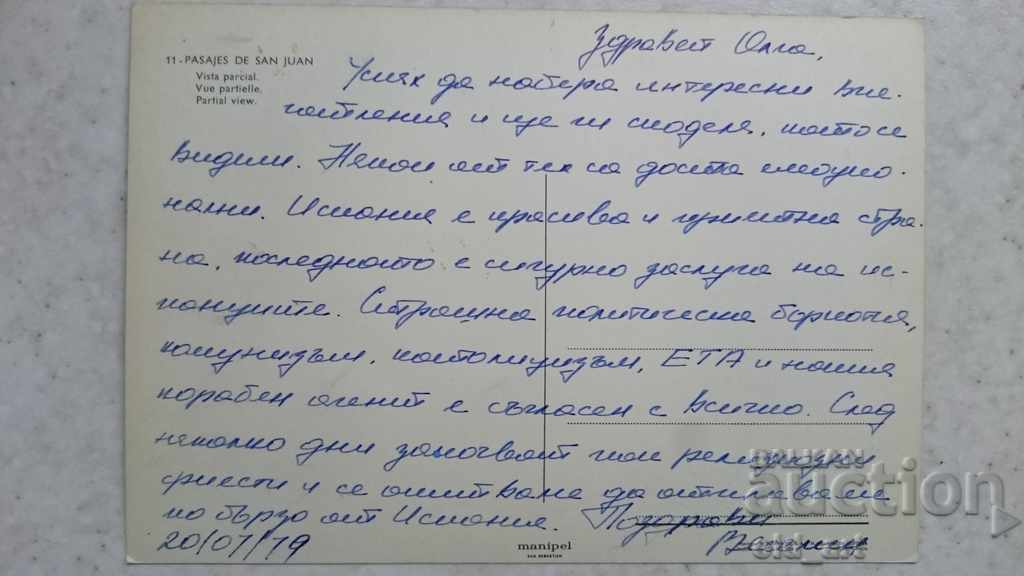 Здравей Олга,
11 - PASAJES DE SAN JUAN
Vista parcial.
Vue partielle.
Partial view.
Успях да набера интересни впе-
чатления и ще ги споделя, като се
видим. Някои от тях са доста емоцио-
нални. Испания е красива и приятна стра-
на, последното е сигурно заслуга на ис-
панците. Страшна политическа бъркотия,
комунизъм, католицизъм, ЕТА и нашия
корабен агент е съгласен с всичко. След
няколко дни започват пак религиозни
фиести и се опитваме да отплаваме
по бързо от Испания. Поздрави
20/07/79
manipel
SAN SEBASTIAN
auction
old_art